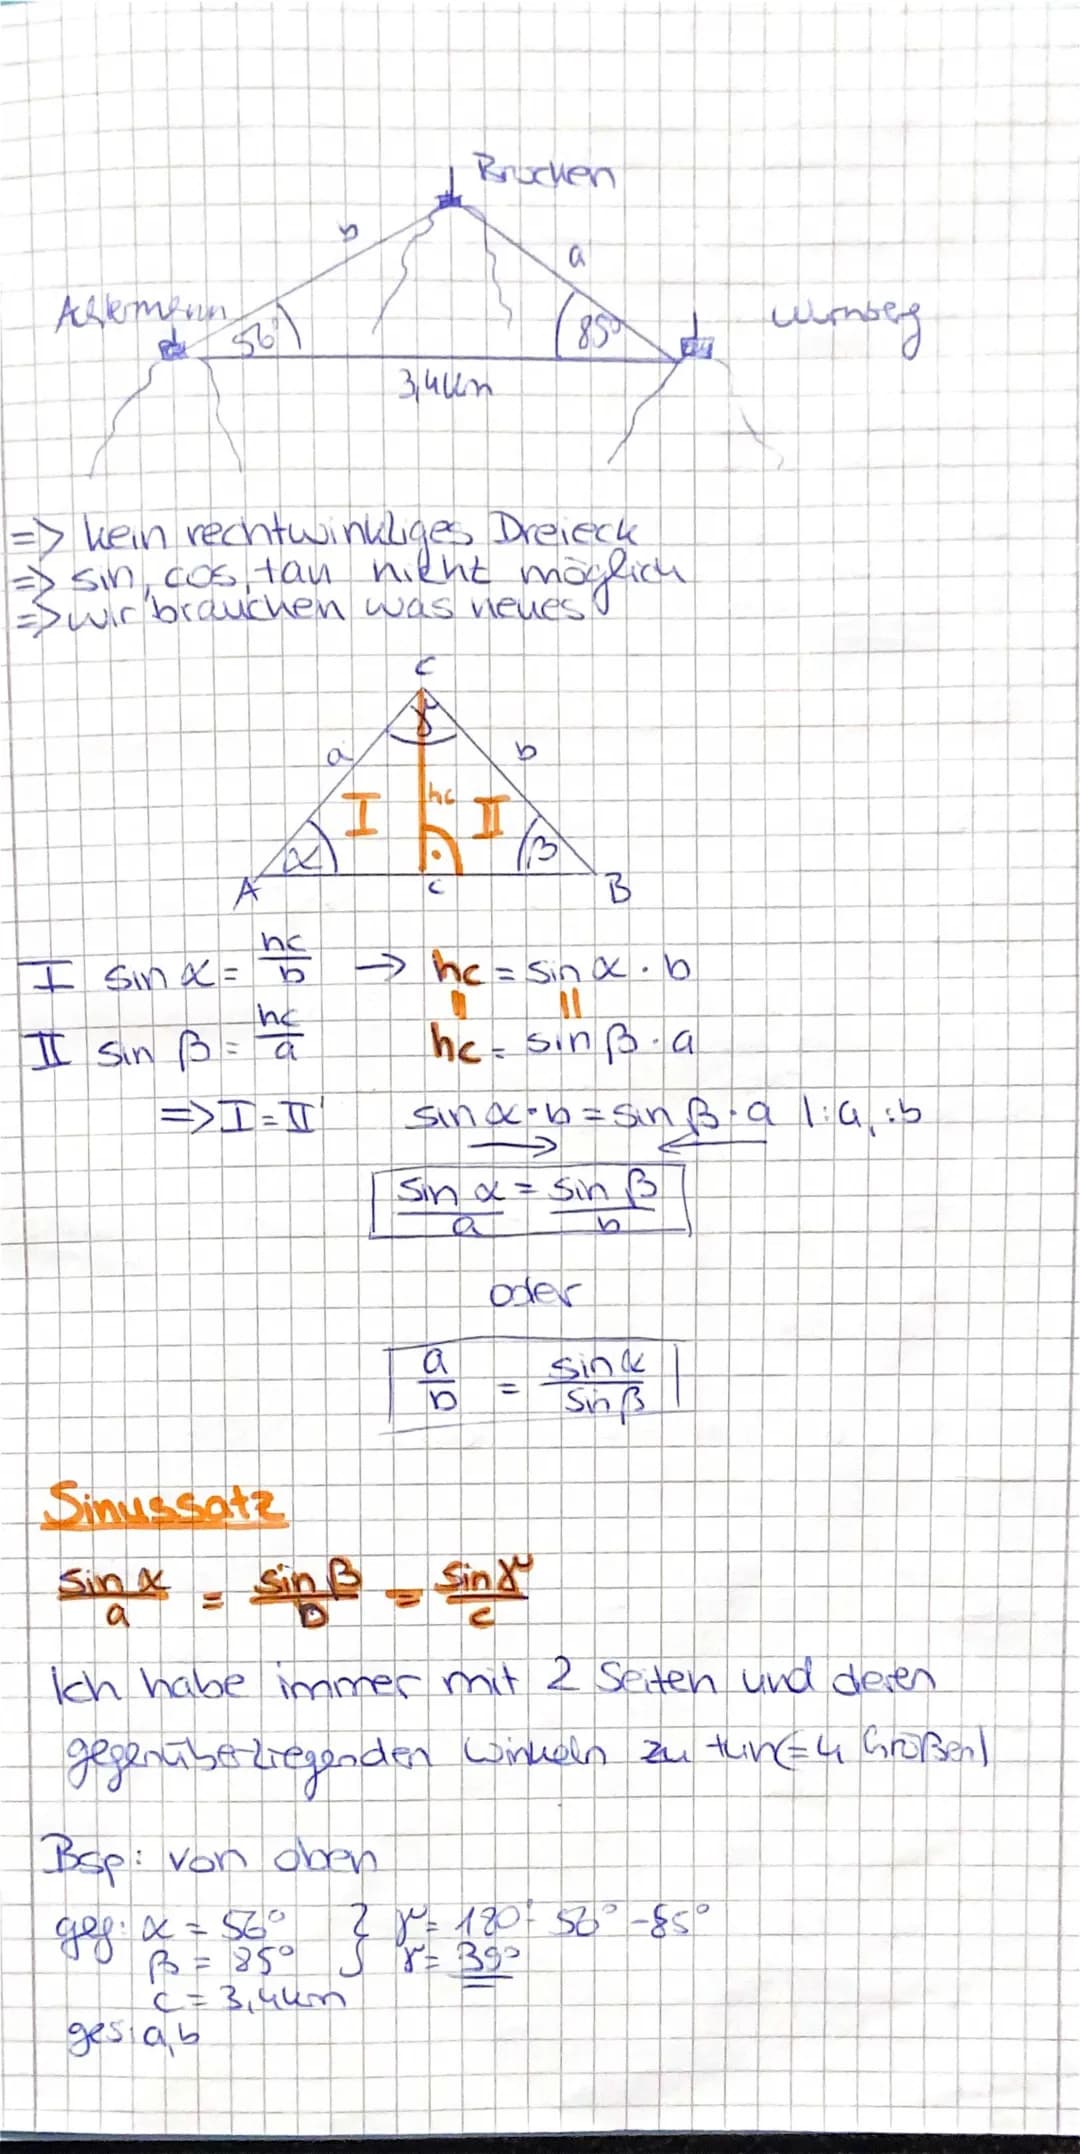 Brocken
b
a
Ackermann
56°
85°
Wurmberg
3,4km
=> kein rechtwinkliges Dreieck
=> sin, cos, tan nicht möglich
=> wir brauchen was neues
C
γ
a
b
I
hc
II
α
β
A
c
B
I sin α = hc/b → hc = sin α · b
II sin β = hc/a hc = sin β · a
=> I = II sin α · b = sin β · a |:a, :b
sin α/a = sin β/b
oder
a/b = sin α/sin β
Sinussatz
sin α/a = sin β/b = sin γ/c
Ich habe immer mit 2 Seiten und deren
gegenüberliegenden Winkeln zu tun (= 4 Größen)
Bsp: von oben
geg: α = 56° } γ = 180° - 56° - 85°
β = 85° γ = 39°
c = 3,4km
ges: a, b